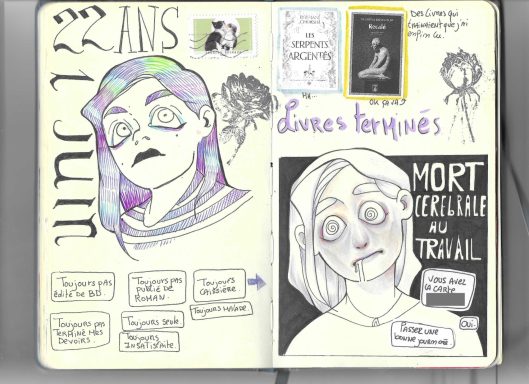 22 ANS
1 JUIN
Toujours pas
édité de BD.
Toujours pas
publié de
roman.
Toujours
caissière
Toujours pas
terminé mes
devoirs.
Toujours seule.
Toujours malade.
Toujours
insatisfaite.
LES
SERPENTS
ARGENTÉS
Des livres qui
traînaient que j'ai
enfin lu.
OU ÇA VA?
Livres terminés
MORT
CÉRÉBRALE
AU
TRAVAIL
VOUS AVEZ
LA CARTE
OUI.
PASSER UNE
bonne journée